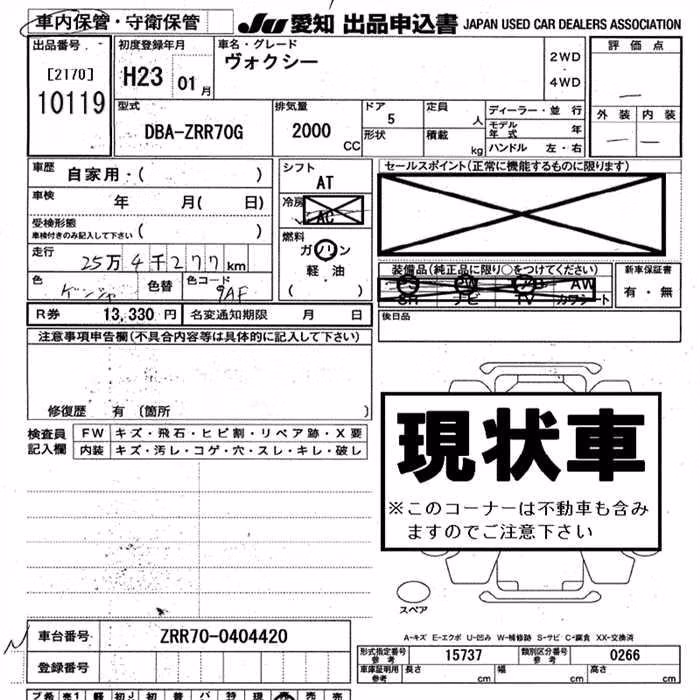 車内保管・守衛保管 JU 愛知 出品申込書 JAPAN USED CAR DEALERS ASSOCIATION
出品番号
[2170]
10119
初度登録年月
H23 01月
車名・グレード
ヴォクシー
2WD
・
4WD
評価点
外装 内装
型式
DBA-ZRR70G
排気量
2000 CC
ドア 5
形状
定員 人
積載 kg
ディーラー・並行
モデル年式 年
ハンドル 左・右
車歴 自家用・( )
車検 年 月( 日)
受検形態
車検付きのみ記入して下さい ( )
走行 25万4千277km
色 色替 色コード
9AF
R券 13,330円 名変通知期限 月 日
シフト
AT
冷房
AC
燃料
ガソリン
軽・油
( )
セールスポイント(正常に機能するものに限ります)
装備品(純正品に限り○をつけてください)
SR ナビ TV カワシート
AW
新車保証書
有・無
後日品
注意事項申告欄(不具合内容等は具体的に記入して下さい)
修復歴 有 (箇所 )
検査員記入欄
FW キズ・飛石・ヒビ割・リペア跡・X要
内装 キズ・汚レ・コゲ・穴・スレ・キレ・破レ
現状車
※このコーナーは不動車も含み
ますのでご注意下さい
スペア
A-キズ E-エクボ U-凹み W-補修跡 S-サビ C-腐食 XX-交換済
車台番号 ZRR70-0404420
登録番号
形式指定番号 参考 15737 類別区分番号 参考 0266
車庫証明用 参考 長さ cm 幅 cm 高さ cm